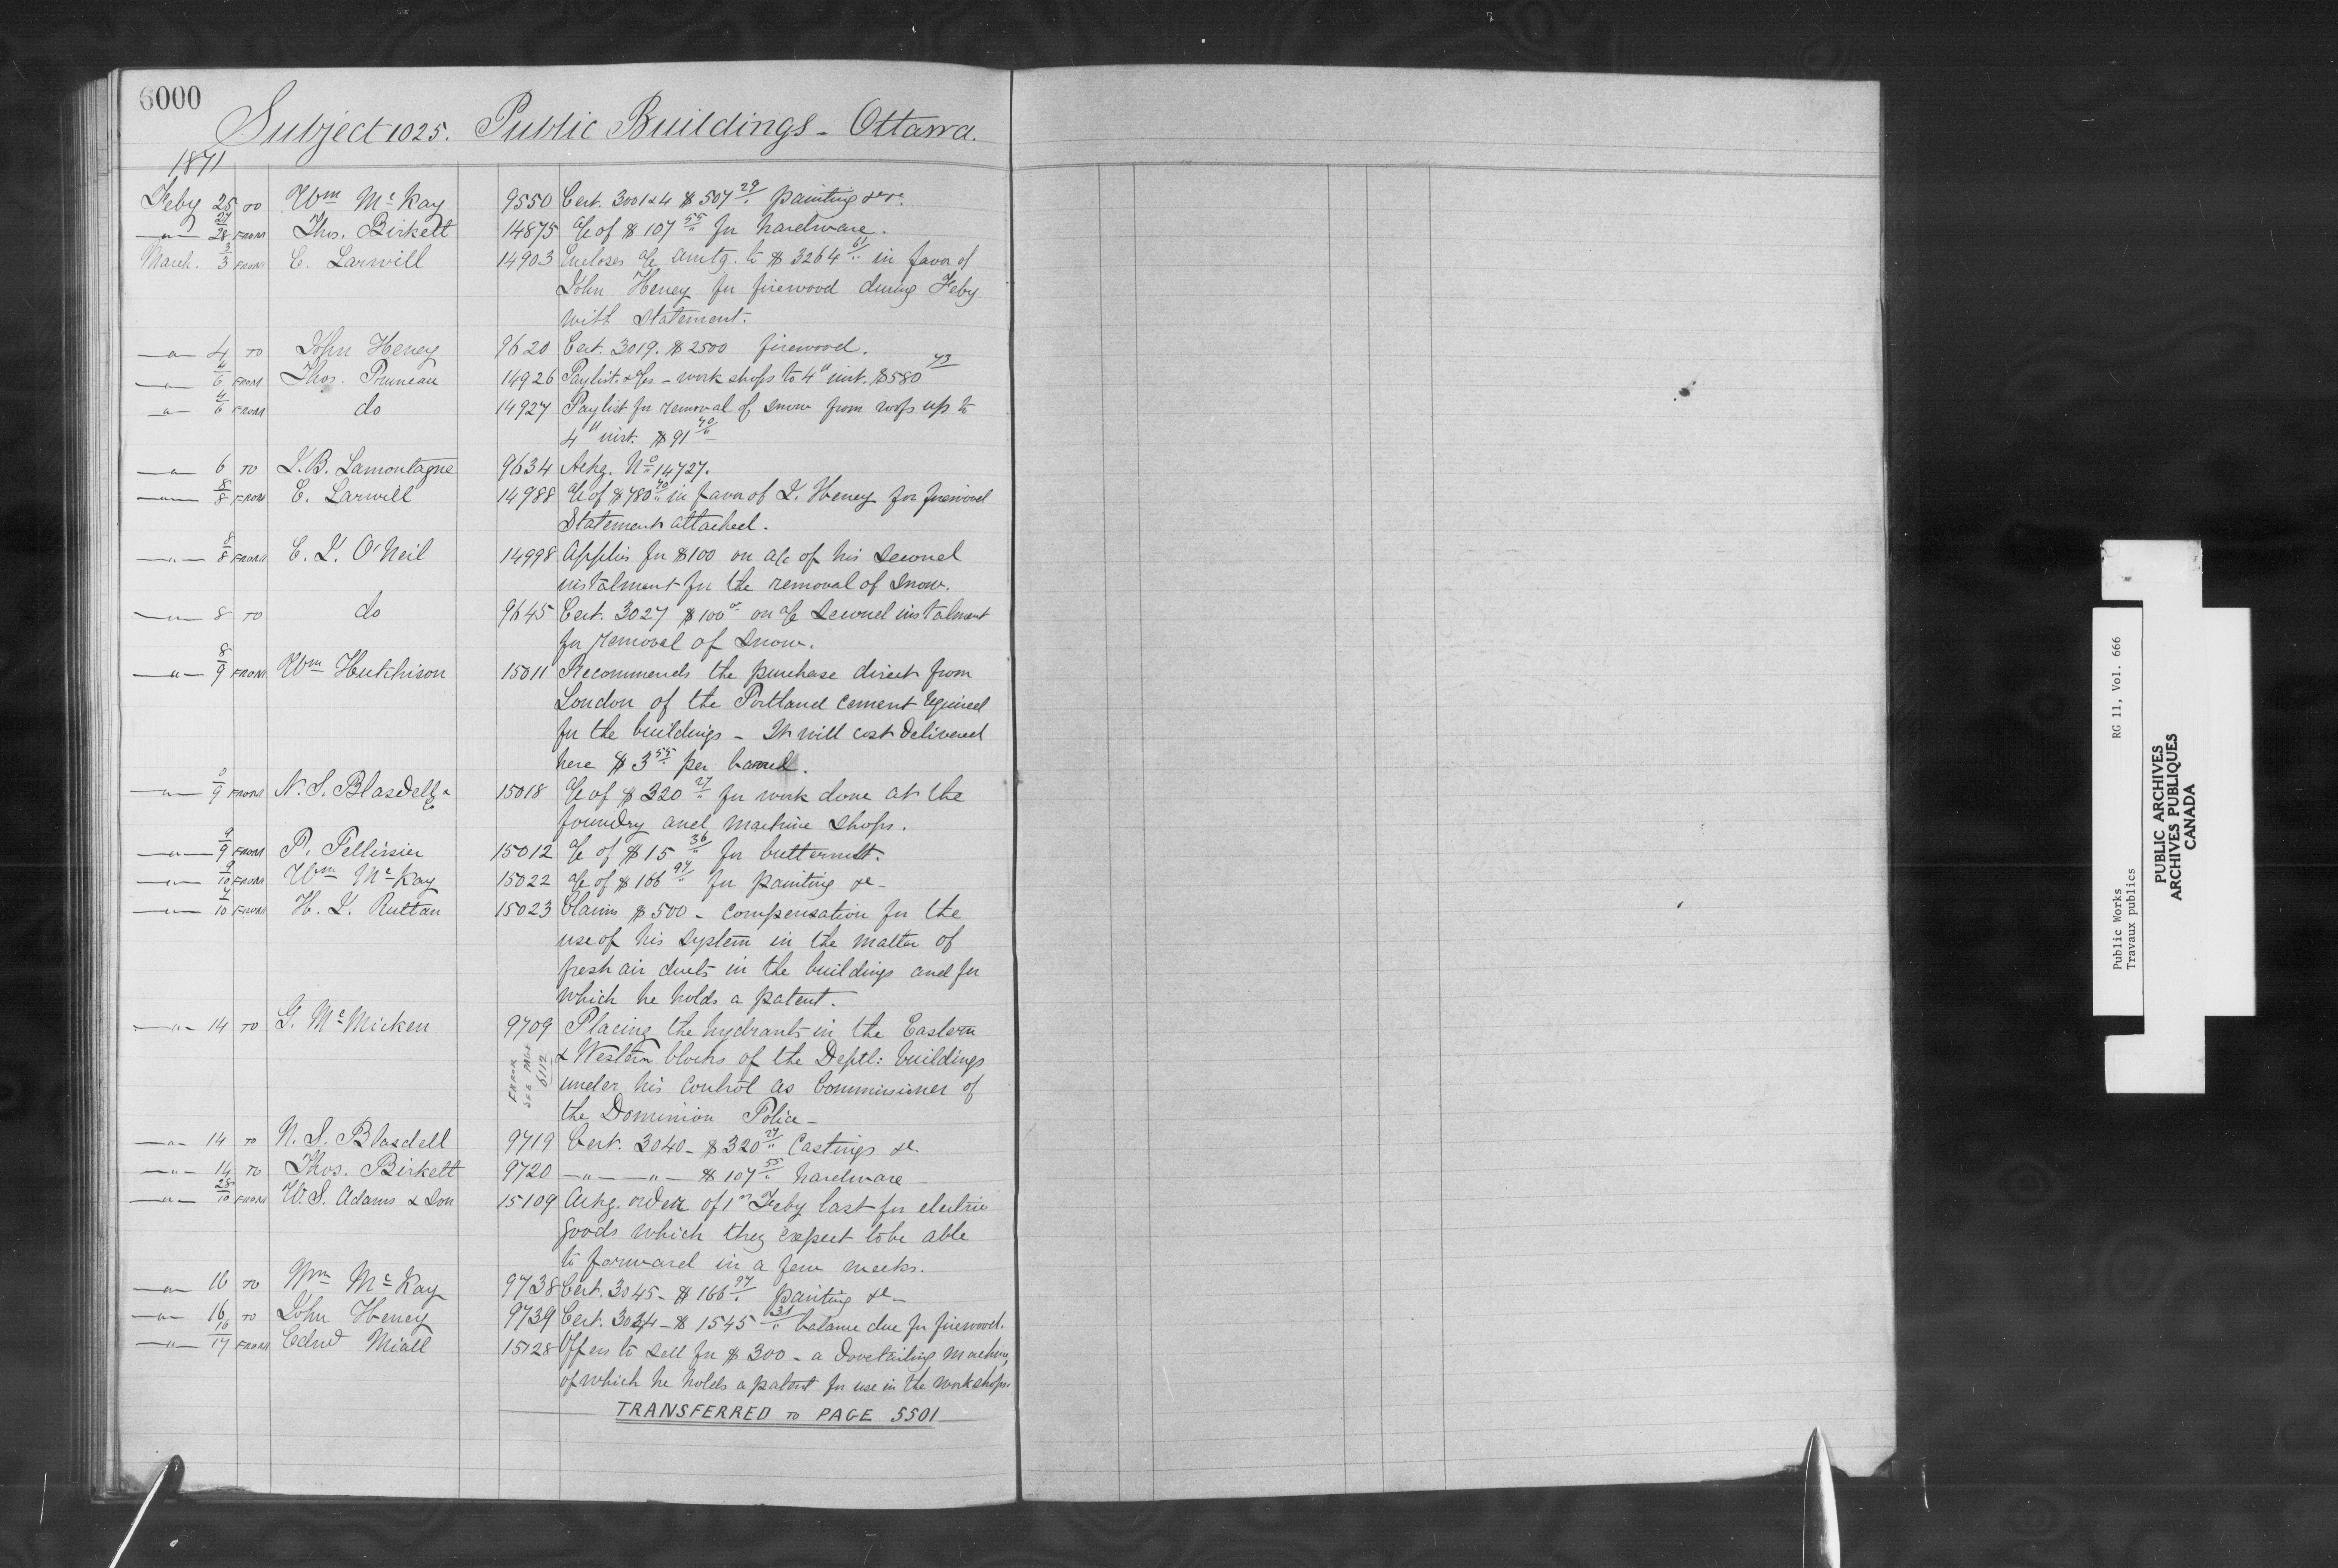 6000
Subject 1025. Public Buildings - Ottawa.
1871
Feby 25 TO Wm McKay 9550 Cert. 3001&4 $507 29/" painting &c &c
—"— 27/28 FROM Thos. Birkett 14875 a/c of $107 55/" for hardware.
March. 3/3 FROM C. Larwill 14903 Encloses a/c amtg. to $3264 61/" in favor of
John Heney for firewood during Feby
with Statement.
—"— 4 TO John Heney 9620 Cert. 3019. $2500 firewood.
—"— 4/6 FROM Thos. Pruneau 14926 Paylist & a/cs - work shops to 4" inst. $580 73
—"— 4/6 FROM do 14927 Paylist for removal of snow from roofs up to
4" inst. $91 70/"
—"— 6 TO J.B. Lamontagne 9634 Ackg. No 14727.
—"— 8/8 FROM C. Larwill 14988 a/c of $780 70/" in favor of J. Heney for firewood
Statement attached.
—"— 8/8 FROM C. J. O'Neil 14998 Applies for $100 on a/c of his second
instalment for the removal of snow.
—"— 8 TO do 9645 Cert. 3027 $100 on a/c second instalment
for removal of snow.
—"— 8/9 FROM Wm Hutchison 15011 Recommends the purchase direct from
London of the Portland cement required
for the buildings - It will cost delivered
here $3 55/" per barrel.
—"— 9 FROM N. S. Blasdell & Co 15018 a/c of $320 27/" for work done at the
foundry and machine shops.
—"— 9/9 FROM P. Pellissier 15012 a/c of $15 36/" for butternut.
—"— 9/10 FROM Wm McKay 15022 a/c of $166 97/" for painting &c -
—"— 7/10 FROM H. J. Ruttan 15023 Claims $500 - compensation for the
use of his system in the matter of
fresh air ducts in the buildings and for
which he holds a patent.
—"— 14 TO G. McMicken 9709 Placing the hydrants in the Eastern
FROM SEE PAGE 6112
& Western blocks of the Deptl: buildings
under his control as Commissioner of
the Dominion Police -
—"— 14 TO N. S. Blasdell 9719 Cert. 3040 - $320 27/" Castings &c.
—"— 14 TO Thos. Birkett 9720 —"— —"— $107 55/" hardware
—"— 28/10 FROM W. S. Adams & Son 15109 Ackg. order of 1st Feby last for electric
goods which they expect to be able
to forward in a few weeks.
—"— 16 TO Wm McKay 9738 Cert. 3045 - $166 97/" painting &c -
—"— 16 TO John Heney 9739 Cert. 3034 - $1545 31/" balance due for firewood.
—"— 16/17 FROM Edwd Miall 15128 Offers to sell for $300 - a dovetailing machine,
of which he holds a patent for use in the workshops.
TRANSFERRED TO PAGE 5501
Public Works RG 11, Vol. 666
Travaux publics
PUBLIC ARCHIVES
ARCHIVES PUBLIQUES
CANADA